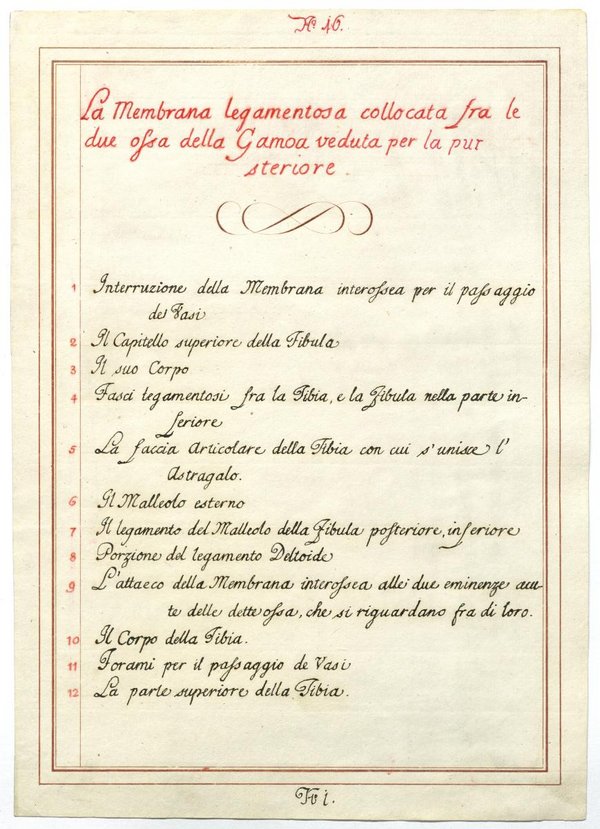 No. 46.
La Membrana legamentosa collocata fra le
due ossa della Gamba veduta per la pur
steriore.
1 Interruzione della Membrana interossea per il passaggio
de Vasi
2 Il Capitello superiore della Fibula
3 Il suo Corpo
4 Fasci legamentosi fra la Tibia, e la Fibula nella parte in-
feriore
5 La faccia Articolare della Tibia con cui s'unisce l'
Astragalo.
6 Il Malleolo esterno
7 Il legamento del Malleolo della Fibula posteriore, inferiore
8 Porzione del legamento Deltoide
9 L'attacco della Membrana interossea alle due eminenze acu-
te delle dette ossa, che si riguardano fra di loro.
10 Il Corpo della Tibia.
11 Forami per il passaggio de Vasi
12 La parte superiore della Tibia.